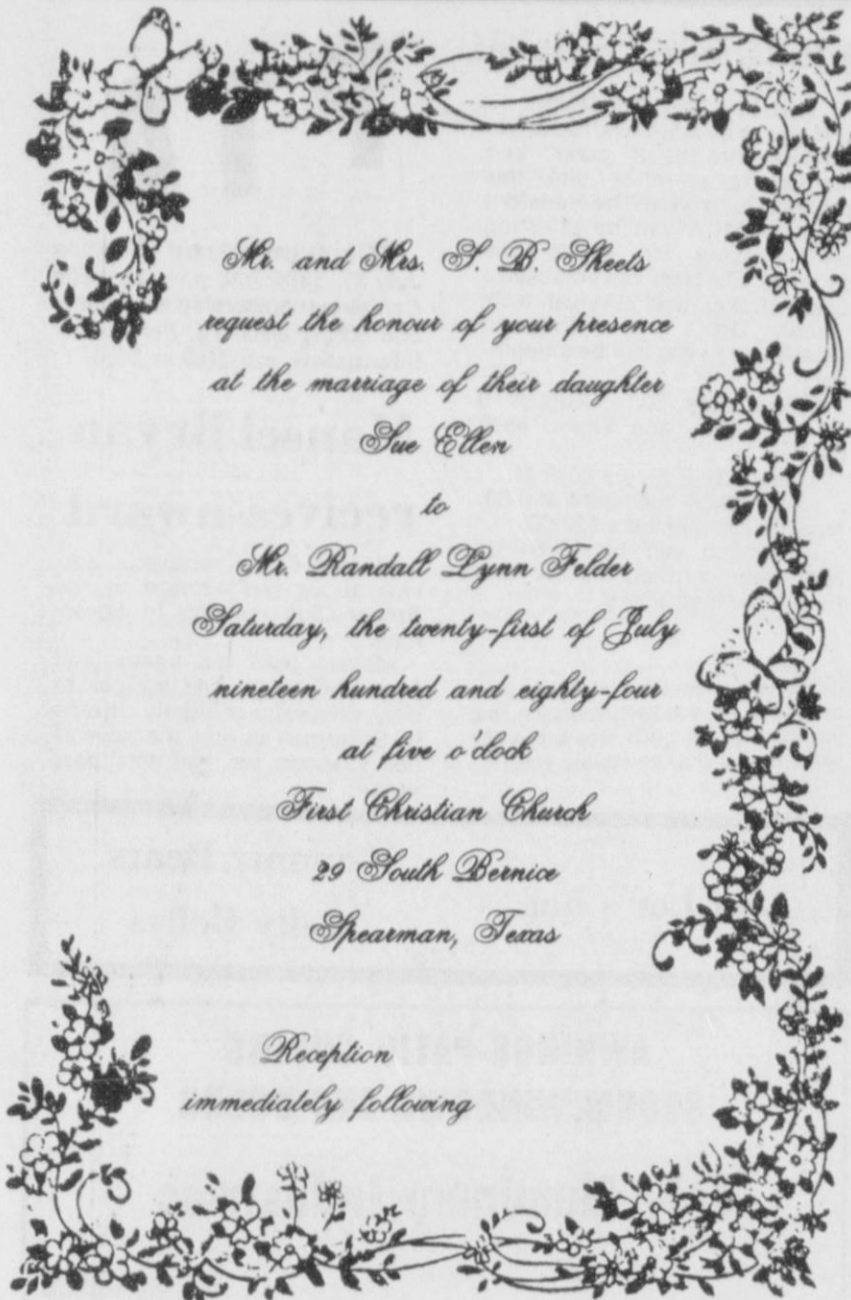 Mr. and Mrs. S. B. Sheets
request the honour of your presence
at the marriage of their daughter
Sue Ellen
to
Mr. Randall Lynn Felder
Saturday, the twenty-first of July
nineteen hundred and eighty-four
at five o'clock
First Christian Church
29 South Bernice
Spearman, Texas
Reception
immediately following